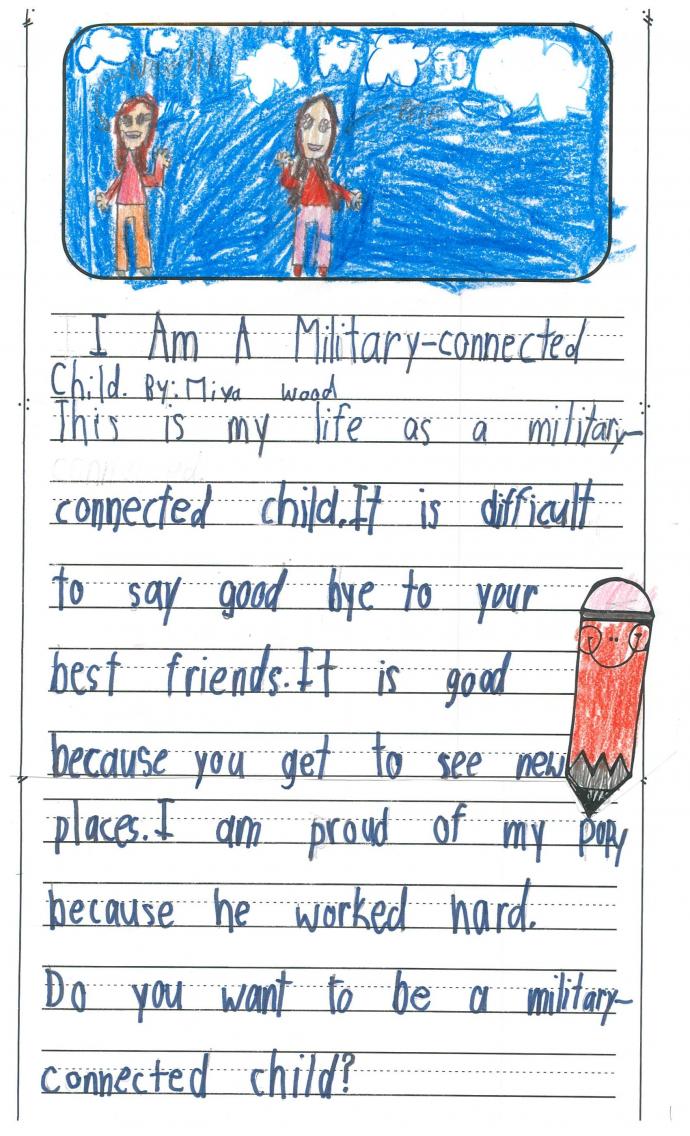 I Am A Military-connected
Child. By: Miya Wood
This is my life as a military-
connected child.It is difficult
to say good bye to your
best friends.It is good
because you get to see new
places.I am proud of my popy
because he worked hard.
Do you want to be a military-
connected child?